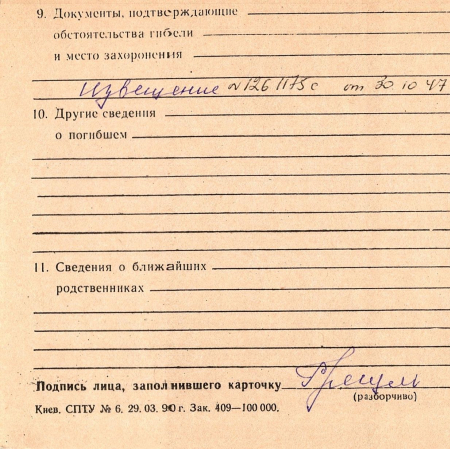 9. Документы, подтверждающие
обстоятельства гибели
и место захоронения
Извещение №1261175с от 30 10 47
10. Другие сведения
о погибшем
11. Сведения о ближайших
родственниках
Подпись лица, заполнившего карточку
(разборчиво)
Киев. СПТУ № 6, 29. 03. 90 г. Зак. 409—100 000.